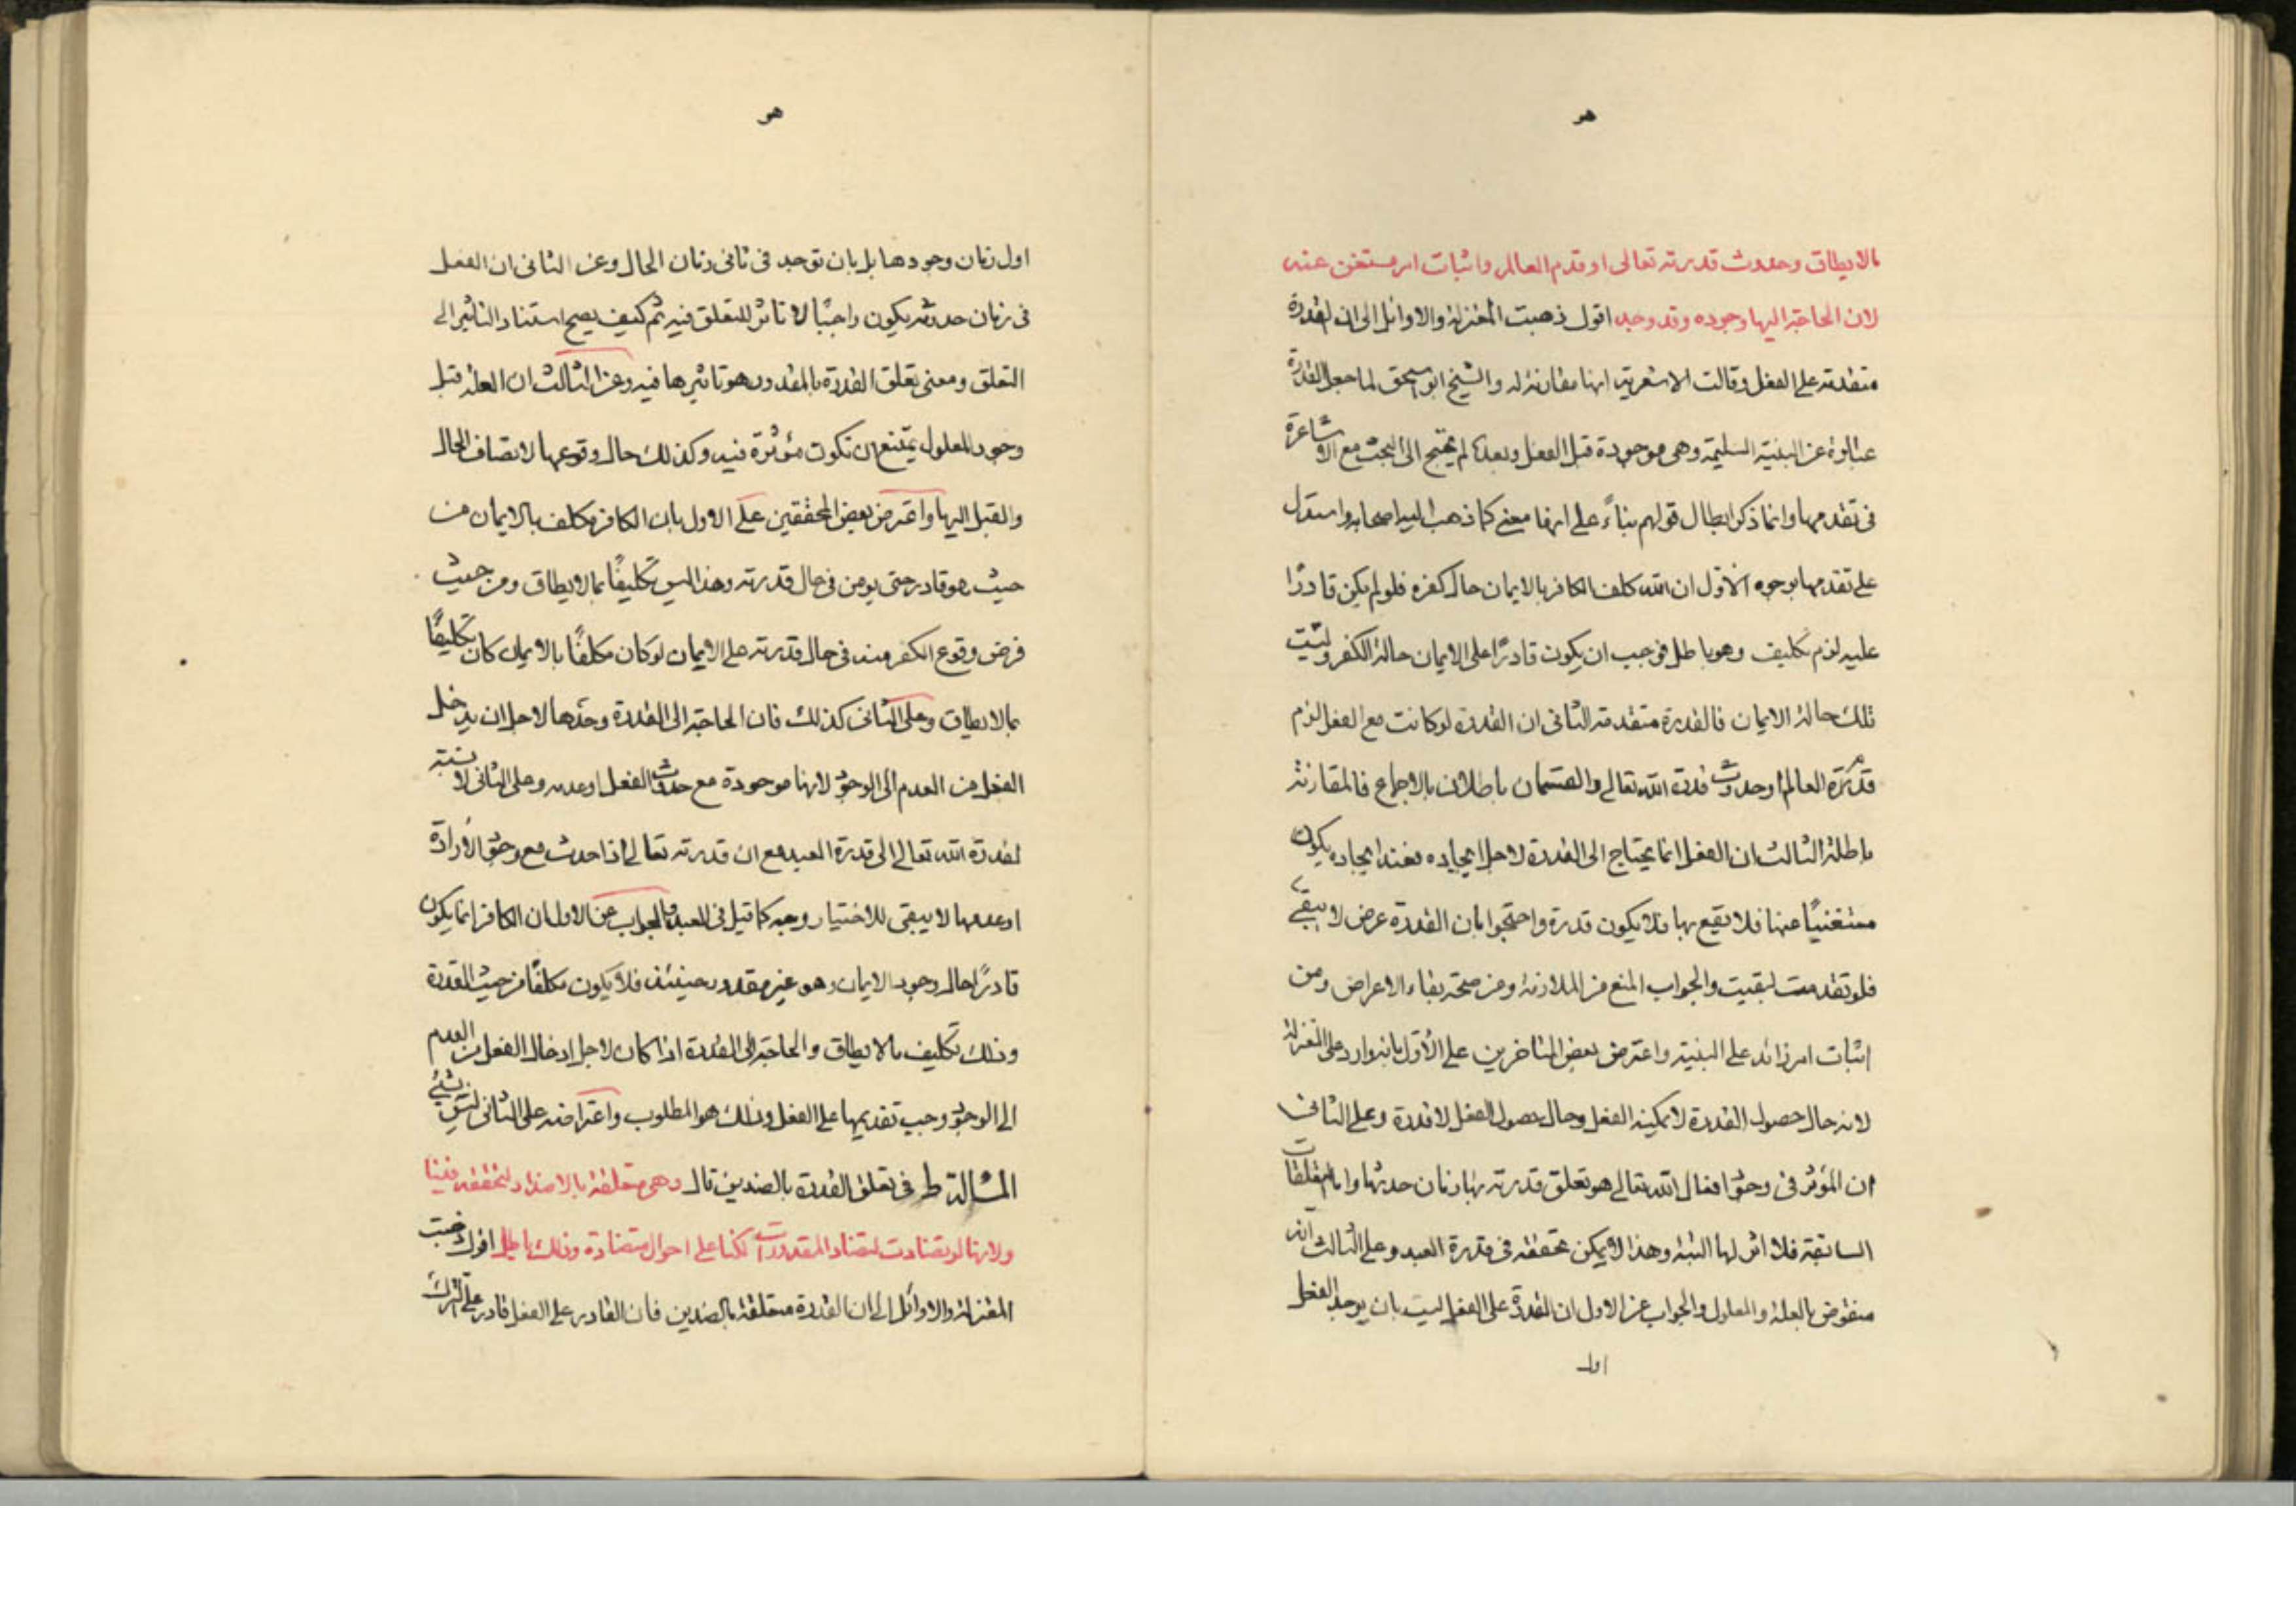 هو
مالا يطاق وحدوث قدرته تعالى او قدم العالم واثبات امر مستغن عنه
لان الحاجة اليها وجوده وقد وجد اقول ذهبت المعتزلة والاوائل الى ان القدرة
متقدمة على الفعل وقالت الاشعرية انها مقارنة له والشيخ ابو اسحق لما جعل القدرة
عبارة عن البنية السليمة وهي موجودة قبل الفعل وبعده لم يحتج الى البحث مع الاشاعرة
في تقدمها وانما ذكر ابطال قولهم بناءً على انها معنى كما ذهب اليه اصحابه واستدل
على تقدمها بوجوه الاوّل ان الله كلف الكافر بالايمان حال كفره فلو لم يكن قادرًا
عليه لزم تكليف وهو باطل فوجب ان يكون قادرًا على الايمان حالة الكفر وليست
تلك حالة الايمان فالقدرة متقدمة الثاني ان القدرة لو كانت مع الفعل لزم
العالم او حدوث قدرة الله تعالى والقسمان باطلان بالاجماع فالمقارنة
باطلة الثالث ان الفعل انما يحتاج الى القدرة لاجل ايجاده فعند ايجاده يكون
مستغنيًا عنها فلا يقع بها فلا يكون قدرة واحتجوا بان القدرة عرض لا يبقى
فلو تقدمت لبقيت والجواب المنع من الملازمة ومن صحة بقاء الاعراض ومن
اثبات امر زائد على البنية واعترض بعض المتاخرين على الأوّل بانه وارد على المعتزلة
لانه حال حصول القدرة لا يمكنه الفعل وحال حصول الفعل لا قدرة وعلى الثاني
ان المؤثر في وجود افعال الله تعالى هو تعلق قدرته بها زمان حدوثها واما التعلقات
السابقة فلا اثر لها البتة وهذا لا يمكن تحققه في قدرة العبد وعلى الثالث انه
منقوض بالعلة والمعلول والجواب عن الاول ان القدرة على الفعل ليست بان يوجد الفعل
اول
هو
اول زمان وجودها بل بان توجد في ثاني زمان الحال وعن الثاني ان الفعل
في زمان حدوثه يكون واجبًا لا تاثر للتعلق فيه ثم كيف يصح استناد التاثير الى
التعلق ومعنى تعلق القدرة بالمقدور هو تاثيرها فيه وعن الثالث ان العلة قبل
وجود المعلول يمتنع ان تكون مؤثرة فيه وكذلك حال وقوعها لانضاف الحال
والقبل اليها واعترض بعض المحققين على الاول بان الكافر مكلف بالايمان من
حيث هو قادر حتى يومن في حال قدرته وهذا ليس تكليفًا بمالا يطاق ومن حيث
فرض وقوع الكفر منه في حال قدرته على الايمان لو كان مكلفًا بالايمان كان تكليفًا
بمالا يطاق وعلى الثاني كذلك فان الحاجة الى القدرة وحدها لاجل ان يدخل
الفعل من العدم الى الوجود لانها موجودة مع حدوث الفعل او عدمه وعلى الثاني لا نسبة
لقدرة الله تعالى الى قدرة العبد مع ان قدرته تعالى اذا احدث مع وجود الارادة
او عدمها لا يبقى للاختيار وجه كما قيل في العبد والجواب عن الاول ان الكافر انما يكون
قادرًا حال وجود الايمان وهو غير مقدور حينئذ فلا يكون مكلفًا من حيث القدرة
وذلك تكليف مالا يطاق والحاجة الى القدرة اذا كان لاجل ادخال الفعل من العدم
الى الوجود وجب تقديمها على الفعل وذلك هو المطلوب واعتراضه على الثاني ليس بشئ
المسألة ط في تعلق القدرة بالضدين قال وهي متعلقة بالاضداد لتحققه فينا
ولانها لو تضادت لتضاد المقدورات لكنا على احوال متضادة وذلك باطل اقول ذهبت
المعتزلة والاوائل الى ان القدرة متعلقة بالضدين فان القادر على الفعل قادر على الترك